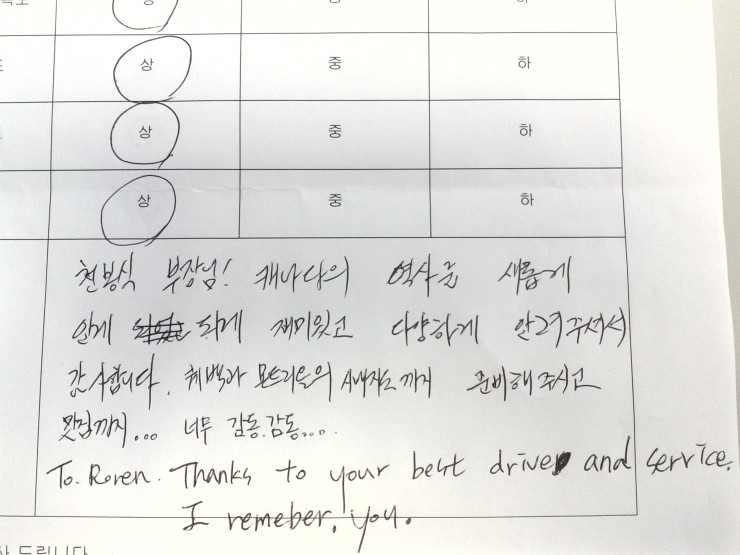 상 중 하
상 중 하
상 중 하
천봉식 부장님! 캐나다의 역사를 새롭게
알게 되게 재미있고 다양하게 알려주셔서
감사합니다. 퀘백과 몬트리올의 까지 준비해주시고
맛집까지... 너무 감동.감동....
To. Roren. Thanks to your best drive and service.
I remeber, you.
드립니다